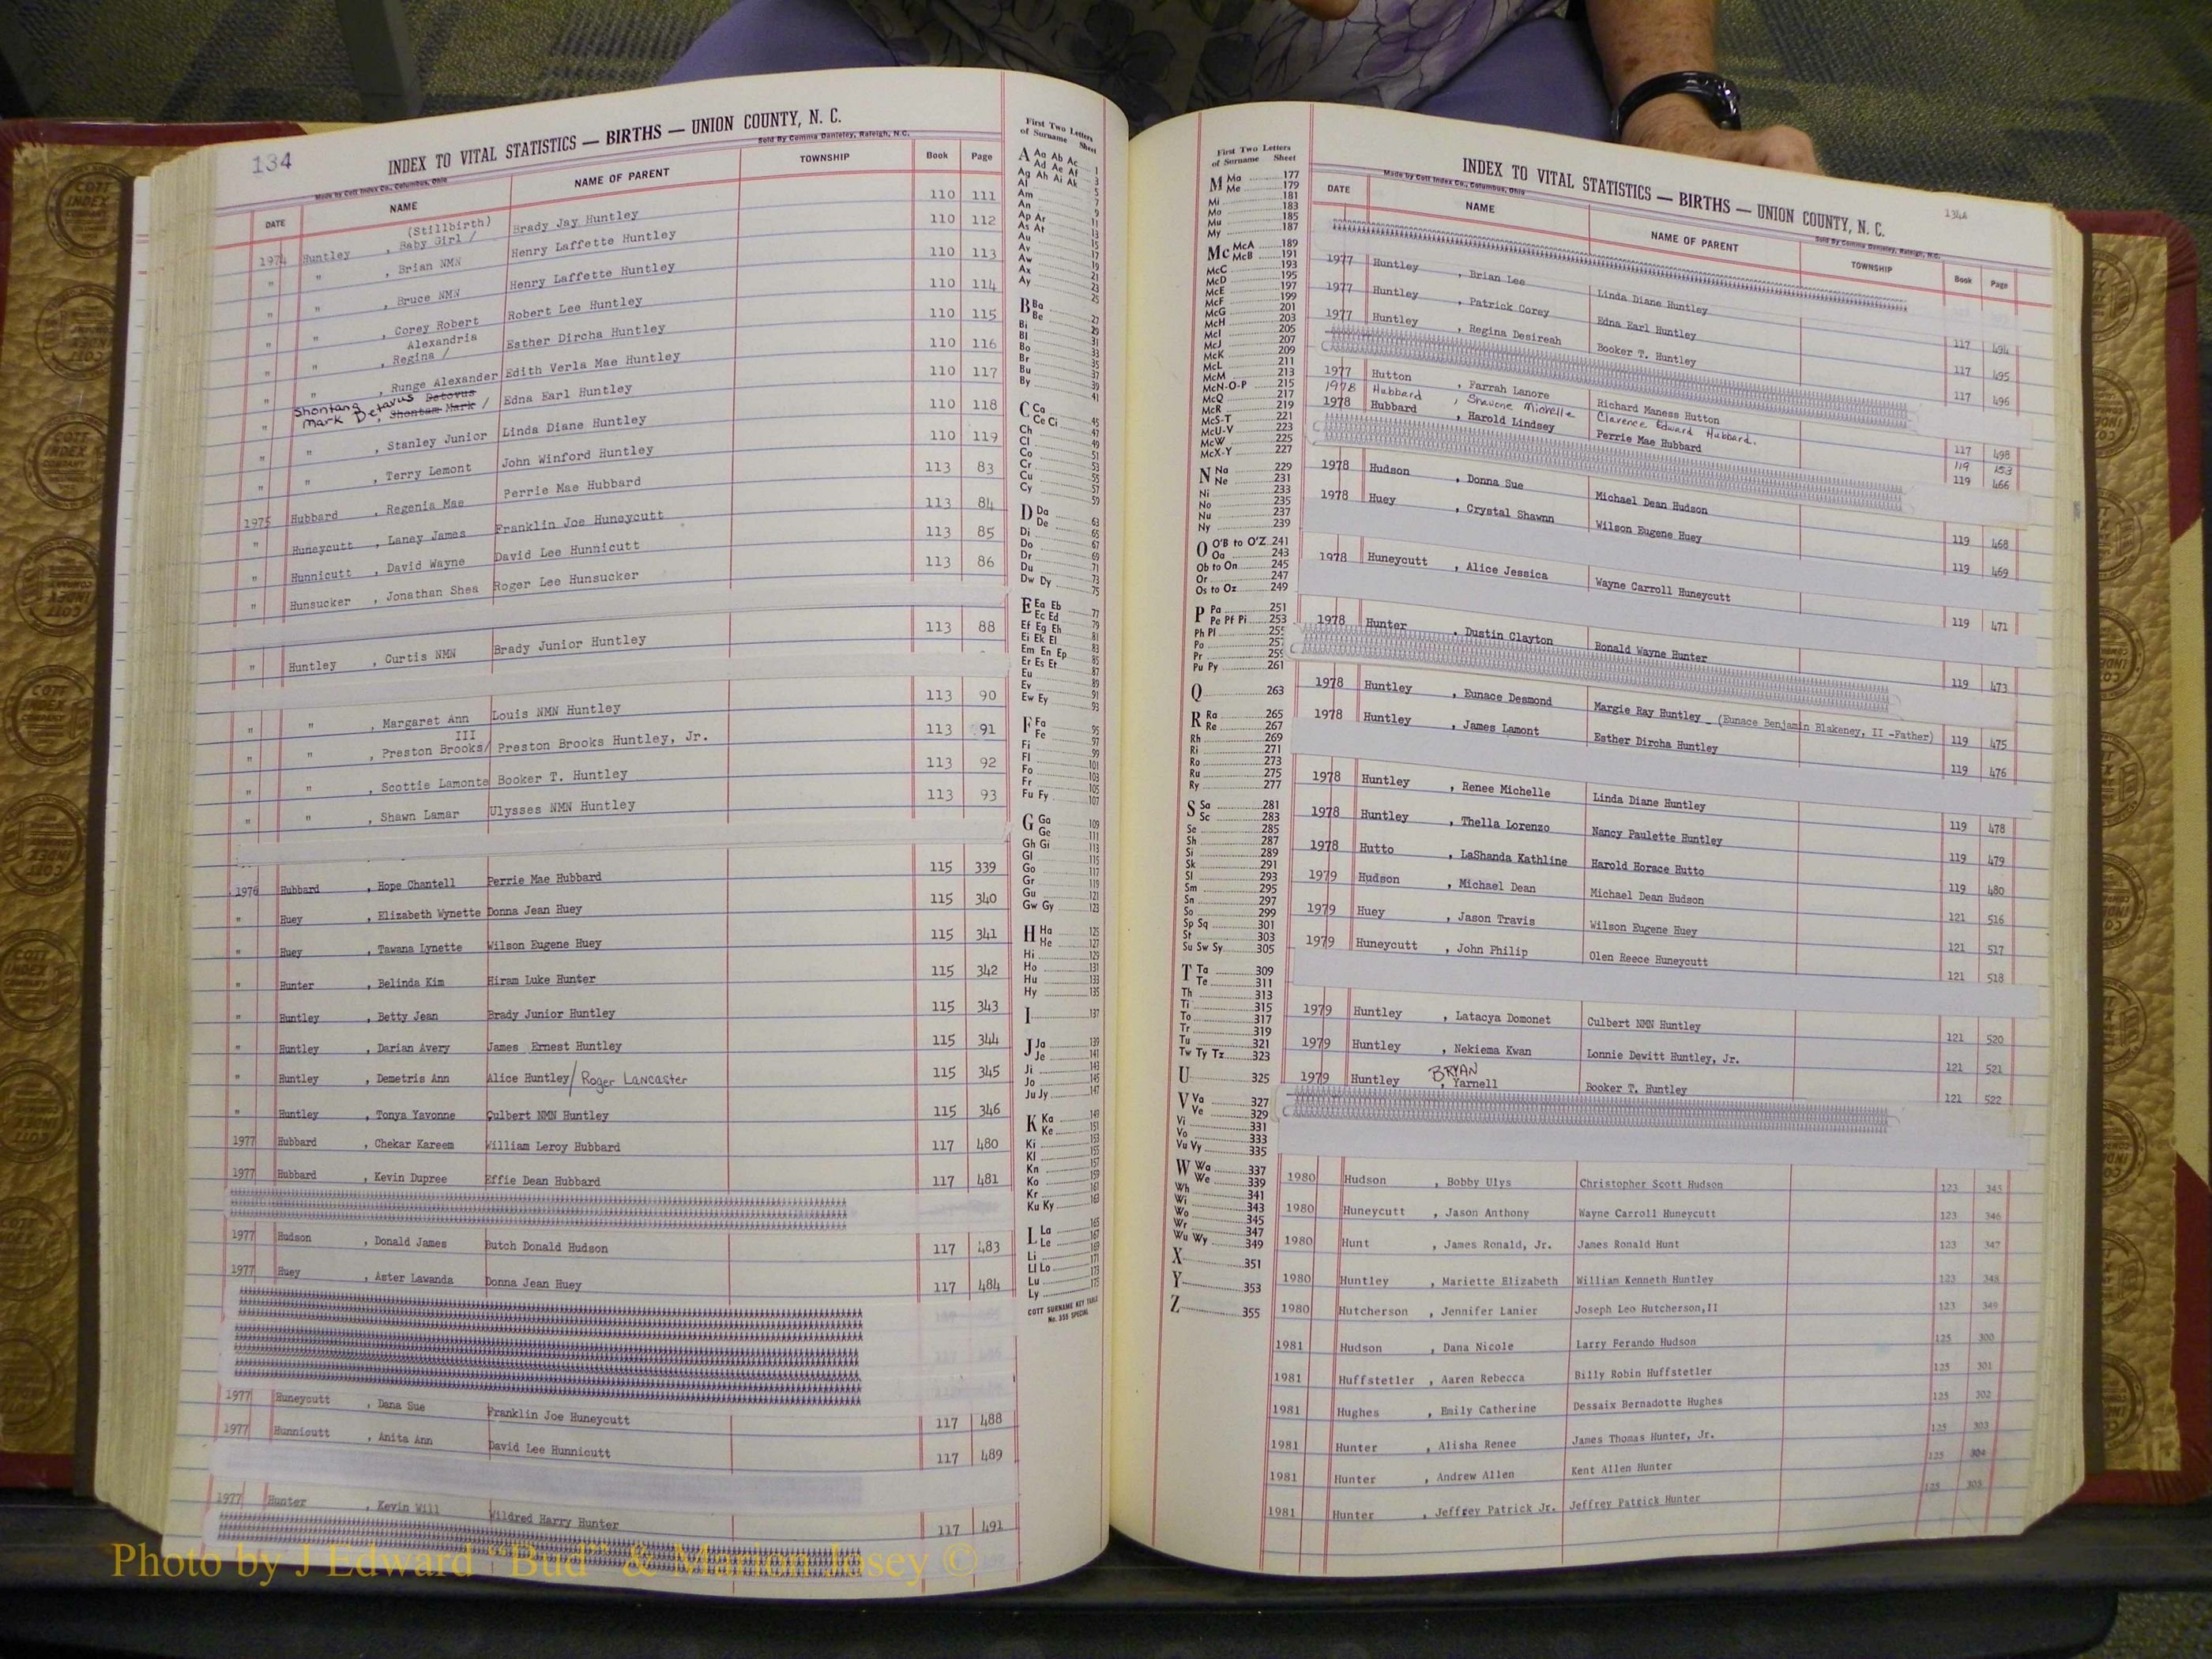 134
INDEX TO VITAL STATISTICS — BIRTHS — UNION COUNTY, N. C.
Made by Cott Index Co., Columbus, Ohio
Sold By Comma Danieley, Raleigh, N.C.
DATE NAME NAME OF PARENT TOWNSHIP Book Page
(Stillbirth)
1974 Huntley , Baby Girl / Brady Jay Huntley 110 111
" " , Brian NMN Henry Laffette Huntley 110 112
" " , Bruce NMN Henry Laffette Huntley 110 113
" " , Corey Robert Robert Lee Huntley 110 114
Alexandria
" " , Regina / Esther Dircha Huntley 110 115
" " , Runge Alexander Edith Verla Mae Huntley 110 116
Shontang Mark Detavus Detovus
" , Shontam Mark / Edna Earl Huntley 110 117
" " , Stanley Junior Linda Diane Huntley 110 118
" " , Terry Lemont John Winford Huntley 110 119
1975 Hubbard , Regenia Mae Perrie Mae Hubbard 113 83
" Huneycutt , Laney James Franklin Joe Huneycutt 113 84
" Hunnicutt , David Wayne David Lee Hunnicutt 113 85
" Hunsucker , Jonathan Shea Roger Lee Hunsucker 113 86
" Huntley , Curtis NMN Brady Junior Huntley 113 88
" " , Margaret Ann Louis NMN Huntley 113 90
III
" " , Preston Brooks/ Preston Brooks Huntley, Jr. 113 91
" " , Scottie Lamonte Booker T. Huntley 113 92
" " , Shawn Lamar Ulysses NMN Huntley 113 93
1976 Hubbard , Hope Chantell Perrie Mae Hubbard 115 339
" Huey , Elizabeth Wynette Donna Jean Huey 115 340
" Huey , Tawana Lynette Wilson Eugene Huey 115 341
" Hunter , Belinda Kim Hiram Luke Hunter 115 342
" Huntley , Betty Jean Brady Junior Huntley 115 343
" Huntley , Darian Avery James Ernest Huntley 115 344
" Huntley , Demetris Ann Alice Huntley/ Roger Lancaster 115 345
" Huntley , Tonya Yavonne Culbert NMN Huntley 115 346
1977 Hubbard , Chekar Kareem William Leroy Hubbard 117 480
1977 Hubbard , Kevin Dupree Effie Dean Hubbard 117 481
1977 Hudson , Donald James Butch Donald Hudson 117 483
1977 Huey , Aster Lawanda Donna Jean Huey 117 484
1977 Huneycutt , Dana Sue Franklin Joe Huneycutt 117 488
1977 Hunnicutt , Anita Ann David Lee Hunnicutt 117 489
1977 Hunter , Kevin Will Wildred Harry Hunter 117 491
First Two Letters
of Surname Sheet
A Aa Ab Ac 1
Ad Ae Af 3
Ag Ah Ai Ak 5
Al 7
Am 9
An 11
Ap Ar 13
As At 15
Au 17
Av 19
Aw 21
Ax 23
Ay 25
B Ba 27
Be 29
Bi 31
Bl 33
Bo 35
Br 37
Bu 39
By 41
C Ca 45
Ce Ci 47
Ch 49
Cl 51
Co 53
Cr 55
Cu 57
Cy 59
D Da 63
De 65
Di 67
Do 69
Dr 71
Du 73
Dw Dy 75
E Ea Eb 77
Ec Ed 79
Ef Eg Eh 81
Ei Ek El 83
Em En Ep 85
Er Es Et 87
Eu 89
Ev 91
Ew Ey 93
F Fa 95
Fe 97
Fi 99
Fl 101
Fo 103
Fr 105
Fu Fy 107
G Ga 109
Ge 111
Gh Gi 113
Gl 115
Go 117
Gr 119
Gu 121
Gw Gy 123
H Ha 125
He 127
Hi 129
Ho 131
Hu 133
Hy 135
I 137
J Ja 139
Je 141
Ji 143
Jo 145
Ju Jy 147
K Ka 149
Ke 151
Ki 153
Kl 155
Kn 157
Ko 159
Kr 161
Ku Ky 163
L La 165
Le 167
Li 169
Ll Lo 171
Lu 173
Ly 175
COTT SURNAME KEY TABLE
No. 355 SPECIAL
First Two Letters
of Surname Sheet
M Ma 177
Me 179
Mi 181
Mo 183
Mu 185
My 187
Mc McA 189
McB 191
McC 193
McD 195
McE 197
McF 199
McG 201
McH 203
McI 205
McJ 207
McK 209
McL 211
McM 213
McN-O-P 215
McQ 217
McR 219
McS-T 221
McU-V 223
McW 225
McX-Y 227
N Na 229
Ne 231
Ni 233
No 235
Nu 237
Ny 239
O O'B to O'Z 241
Oa 243
Ob to On 245
Or 247
Os to Oz 249
P Pa 251
Pe Pf Pi 253
Ph Pl 255
Po 257
Pr 259
Pu Py 261
Q 263
R Ra 265
Re 267
Rh 269
Ri 271
Ro 273
Ru 275
Ry 277
S Sa 281
Sc 283
Se 285
Sh 287
Si 289
Sk 291
Sl 293
Sm 295
Sn 297
So 299
Sp Sq 301
St 303
Su Sw Sy 305
T Ta 309
Te 311
Th 313
Ti 315
To 317
Tr 319
Tu 321
Tw Ty Tz 323
U 325
V Va 327
Ve 329
Vi 331
Vo 333
Vu Vy 335
W Wa 337
We 339
Wh 341
Wi 343
Wo 345
Wr 347
Wu Wy 349
X 351
Y 353
Z 355
134A
INDEX TO VITAL STATISTICS — BIRTHS — UNION COUNTY, N. C.
Made by Cott Index Co., Columbus, Ohio
Sold By Comma Danieley, Raleigh, N.C.
DATE NAME NAME OF PARENT TOWNSHIP Book Page
1977 Huntley , Brian Lee Linda Diane Huntley 117 494
1977 Huntley , Patrick Corey Edna Earl Huntley 117 495
1977 Huntley , Regina Desireah Booker T. Huntley 117 496
1977 Hutton , Farrah Lanore Richard Maness Hutton 117 498
1978 Hubbard , Shavone Michelle Clarence Edward Hubbard. 119 153
1978 Hubbard , Harold Lindsey Perrie Mae Hubbard 119 466
1978 Hudson , Donna Sue Michael Dean Hudson 119 468
1978 Huey , Crystal Shawnn Wilson Eugene Huey 119 469
1978 Huneycutt , Alice Jessica Wayne Carroll Huneycutt 119 471
1978 Hunter , Dustin Clayton Ronald Wayne Hunter 119 473
1978 Huntley , Eunace Desmond Margie Ray Huntley (Eunace Benjamin Blakeney, II -Father) 119 475
1978 Huntley , James Lamont Esther Dircha Huntley 119 476
1978 Huntley , Renee Michelle Linda Diane Huntley 119 478
1978 Huntley , Thella Lorenzo Nancy Paulette Huntley 119 479
1978 Hutto , LaShanda Kathline Harold Horace Hutto 119 480
1979 Hudson , Michael Dean Michael Dean Hudson 121 516
1979 Huey , Jason Travis Wilson Eugene Huey 121 517
1979 Huneycutt , John Philip Olen Reece Huneycutt 121 518
1979 Huntley , Latacya Domonet Culbert NMN Huntley 121 520
1979 Huntley , Nekiema Kwan Lonnie Dewitt Huntley, Jr. 121 521
BRYAN
1979 Huntley , Yarnell Booker T. Huntley 121 522
1980 Hudson , Bobby Ulys Christopher Scott Hudson 123 345
1980 Huneycutt , Jason Anthony Wayne Carroll Huneycutt 123 346
1980 Hunt , James Ronald, Jr. James Ronald Hunt 123 347
1980 Huntley , Mariette Elizabeth William Kenneth Huntley 123 348
1980 Hutcherson , Jennifer Lanier Joseph Leo Hutcherson,II 123 349
1981 Hudson , Dana Nicole Larry Ferando Hudson 125 300
1981 Huffstetler , Aaren Rebecca Billy Robin Huffstetler 125 301
1981 Hughes , Emily Catherine Dessaix Bernadotte Hughes 125 302
1981 Hunter , Alisha Renee James Thomas Hunter, Jr. 125 303
1981 Hunter , Andrew Allen Kent Allen Hunter 125 304
1981 Hunter , Jeffrey Patrick Jr. Jeffrey Patrick Hunter 125 305
Photo by J Edward "Bud" & Marion Josey ©